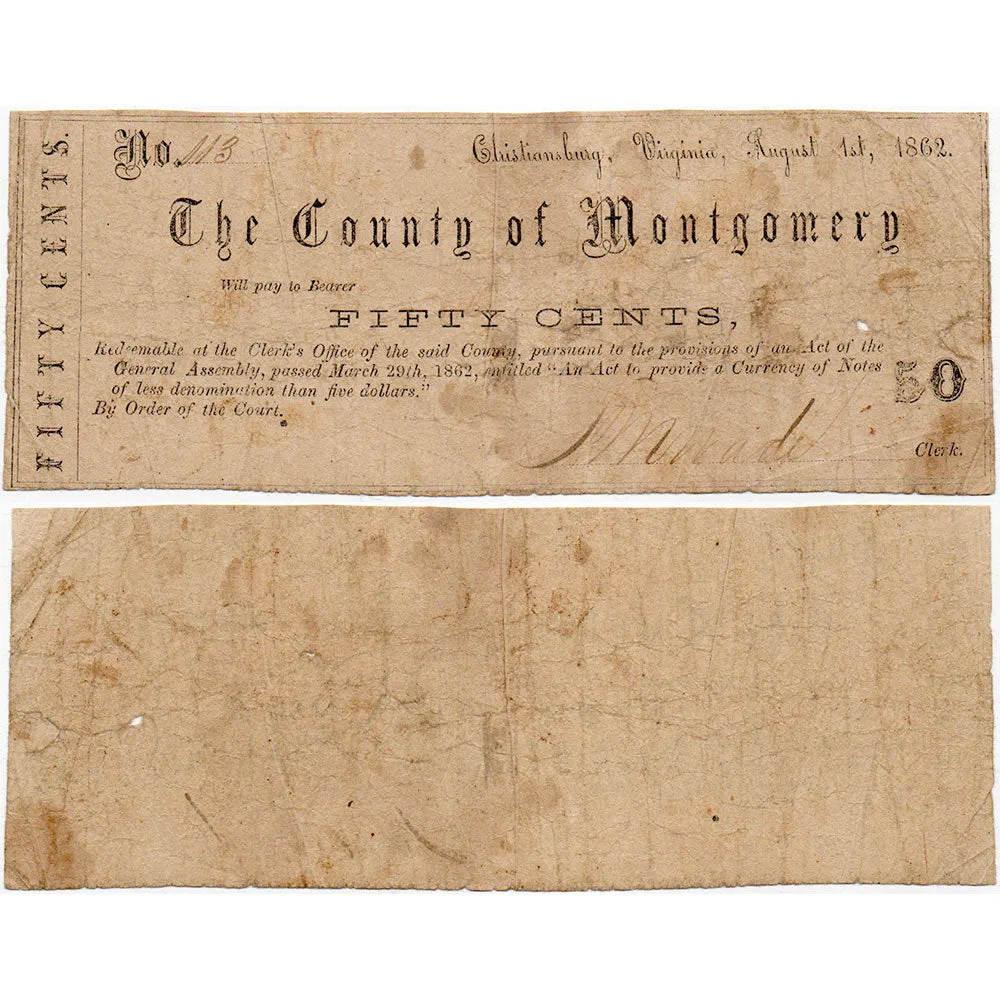 FIFTY CENTS.
No. 113
Christiansburg, Virginia, August 1st, 1862.
The County of Montgomery
Will pay to Bearer
FIFTY CENTS,
Redeemable at the Clerk's Office of the said County, pursuant to the provisions of an Act of the
General Assembly, passed March 29th, 1862, entitled "An Act to provide a Currency of Notes
of less denomination than five dollars."
50
By Order of the Court.
Clerk.